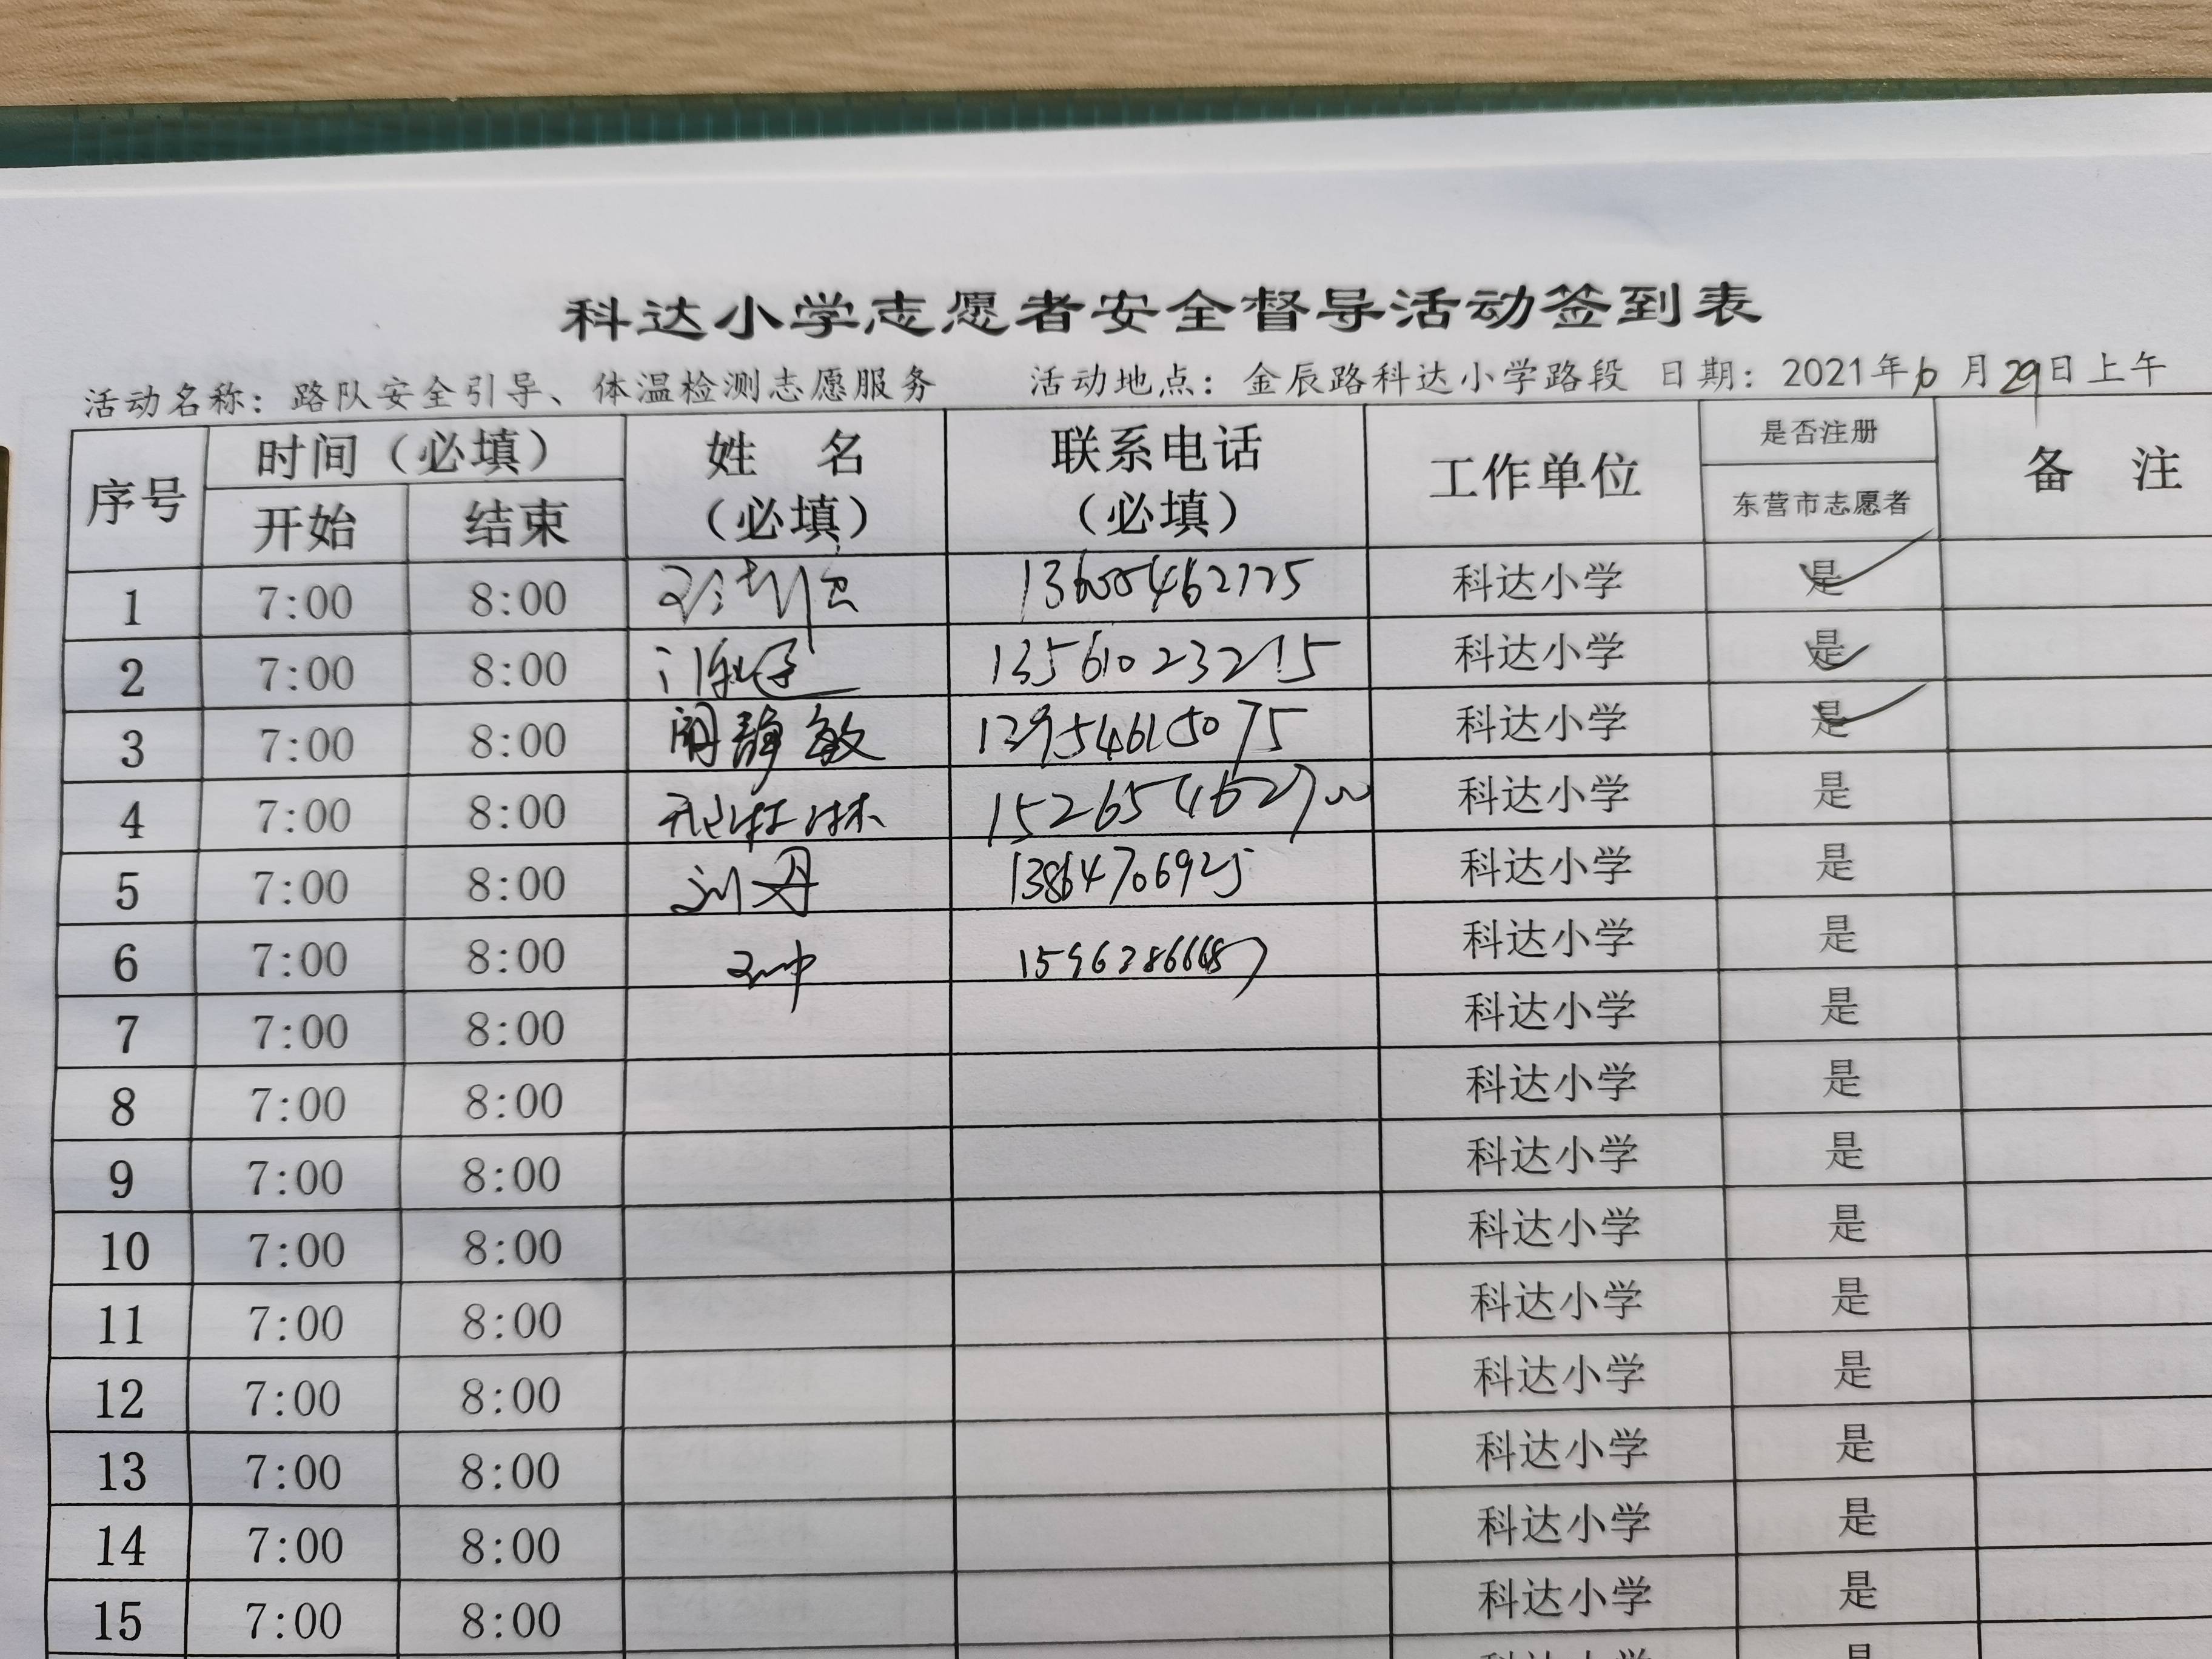 科达小学志愿者安全督导活动签到表
活动名称：路队安全引导、体温检测志愿服务 活动地点：金辰路科达小学路段 日期：2021年10月29日上午
序号 时间（必填） 姓 名（必填） 联系电话（必填） 工作单位 是否注册 备 注
开始 结束 东营市志愿者
1 7:00 8:00 科达小学 是
2 7:00 8:00 13561023215 科达小学 是
3 7:00 8:00 静敏 科达小学 是
4 7:00 8:00 科达小学 是
5 7:00 8:00 刘丹 13864706925 科达小学 是
6 7:00 8:00 科达小学 是
7 7:00 8:00 科达小学 是
8 7:00 8:00 科达小学 是
9 7:00 8:00 科达小学 是
10 7:00 8:00 科达小学 是
11 7:00 8:00 科达小学 是
12 7:00 8:00 科达小学 是
13 7:00 8:00 科达小学 是
14 7:00 8:00 科达小学 是
15 7:00 8:00 科达小学 是
科达小学 是